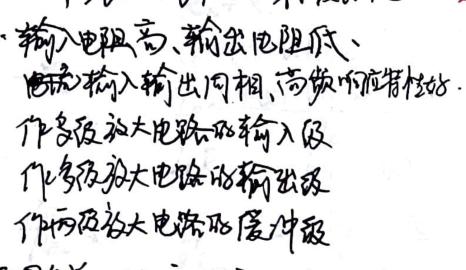 ·输入电阻高、输出电阻低、
输入输出同相、高频响应特性好.
作多级放大电路的输入级
作多级放大电路的输出级
作两级放大电路的缓冲级